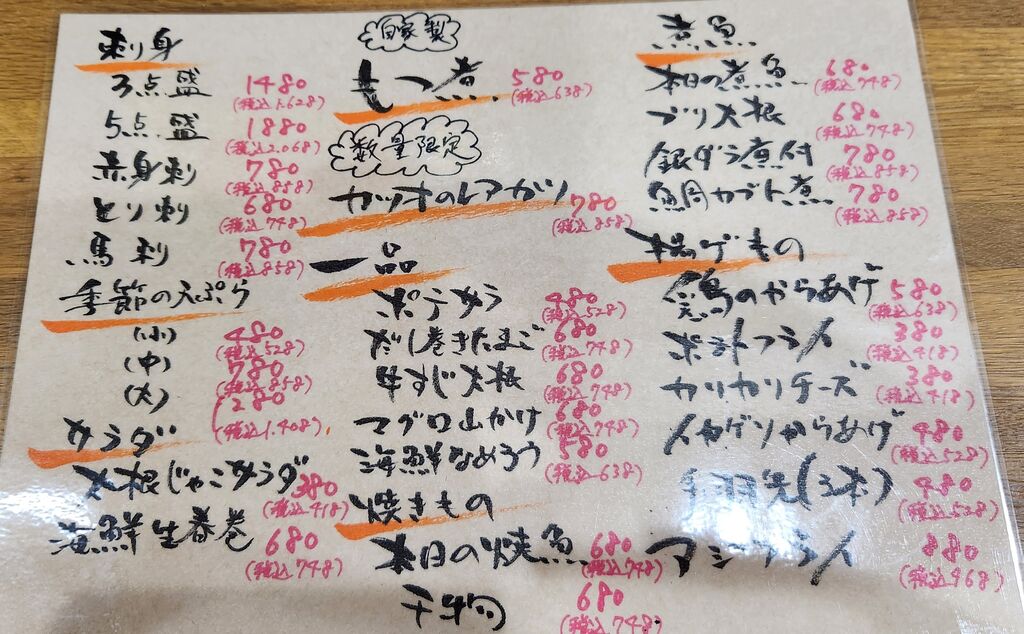 刺身
3点盛 1480
(税込1.628)
5点盛 1880
(税込2.068)
赤身刺 780
(税込858)
とり刺 680
(税込748)
馬刺 780
(税込858)
季節の天ぷら
(小) 480
(税込528)
(中) 780
(税込858)
(大) 1280
(税込1.408)
サラダ
大根じゃこサラダ 380
(税込418)
海鮮生春巻 680
(税込748)
自家製
もつ煮 580
(税込638)
数量限定
カツオのレアカツ 780
(税込858)
一品
ポテサラ 480
(税込528)
だし巻きたまご 680
(税込748)
牛すじ大根 680
(税込748)
マグロ山かけ 680
(税込748)
海鮮なめろう 580
(税込638)
焼きもの
本日の焼魚 680
(税込748)
干物 680
(税込748)
煮魚
本日の煮魚 680
(税込748)
ブリ大根 680
(税込748)
銀ダラ煮付 780
(税込858)
鯛カブト煮 780
(税込858)
揚げもの
鶏のからあげ 580
(税込638)
ポテトフライ 380
(税込418)
カリカリチーズ 380
(税込418)
イカゲソからあげ 480
(税込528)
手羽先(3本) 480
(税込528)
アジフライ 880
(税込968)